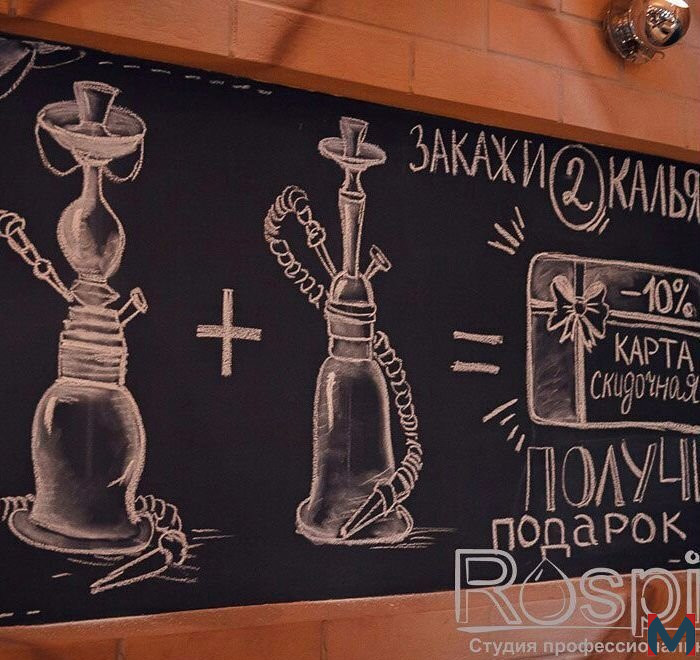 ЗАКАЖИ 2 КАЛЬЯ
+
=
-10%
КАРТА
СКИДОЧНАЯ
ПОЛУЧИ
ПОДАРОК
Rospi
Студия профессиональн
М